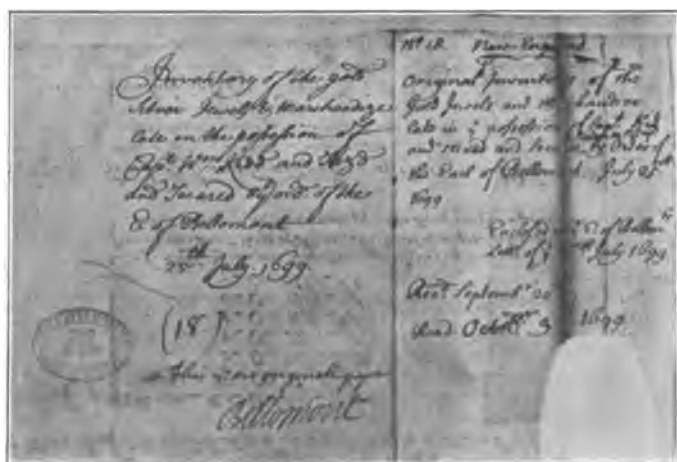 Inventory of the gold
Silver Jewells & Marchandize
late in the possession of
Capt. Wm Kidd and Seized
and Secured by ord. of the
E of Bellomont
25th July. 1699
(18)
This is an original paper
Bellomont
No. 18. New-England
Original Inventory of the
Gold Jewels and Merchandize
late in ye possession of Capt. Kidd
and seized and secured by Order of
the Earl of Bellomont. July 25th
1699
Enclosed in ye E. of Bellomts
Lettr. of ye July 1699
Recd. Septembr 20
Read Octobr. 3 1699